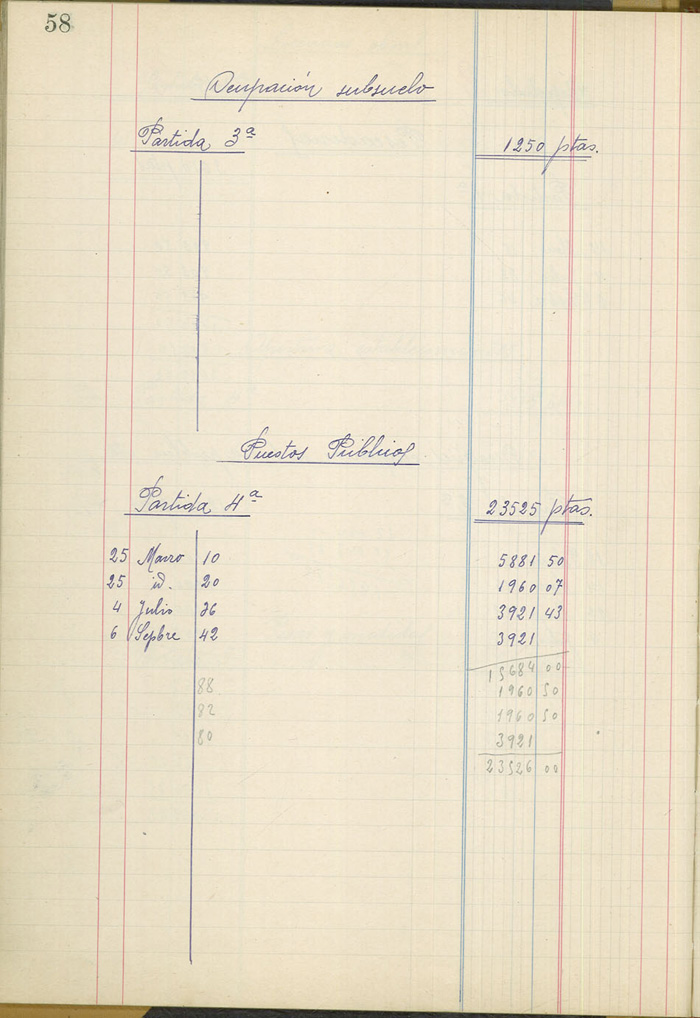 58
Ocupación subsuelo
Partida 3ª 1250 ptas.
Puestos Públicos
Partida 4ª 23525 ptas.
25 Marzo 10 5881 50
25 id. 20 1960 07
4 Julio 36 3921 43
6 Sepbre 42 3921
15684 00
88 1960 50
82 1960 50
80 3921
23526 00